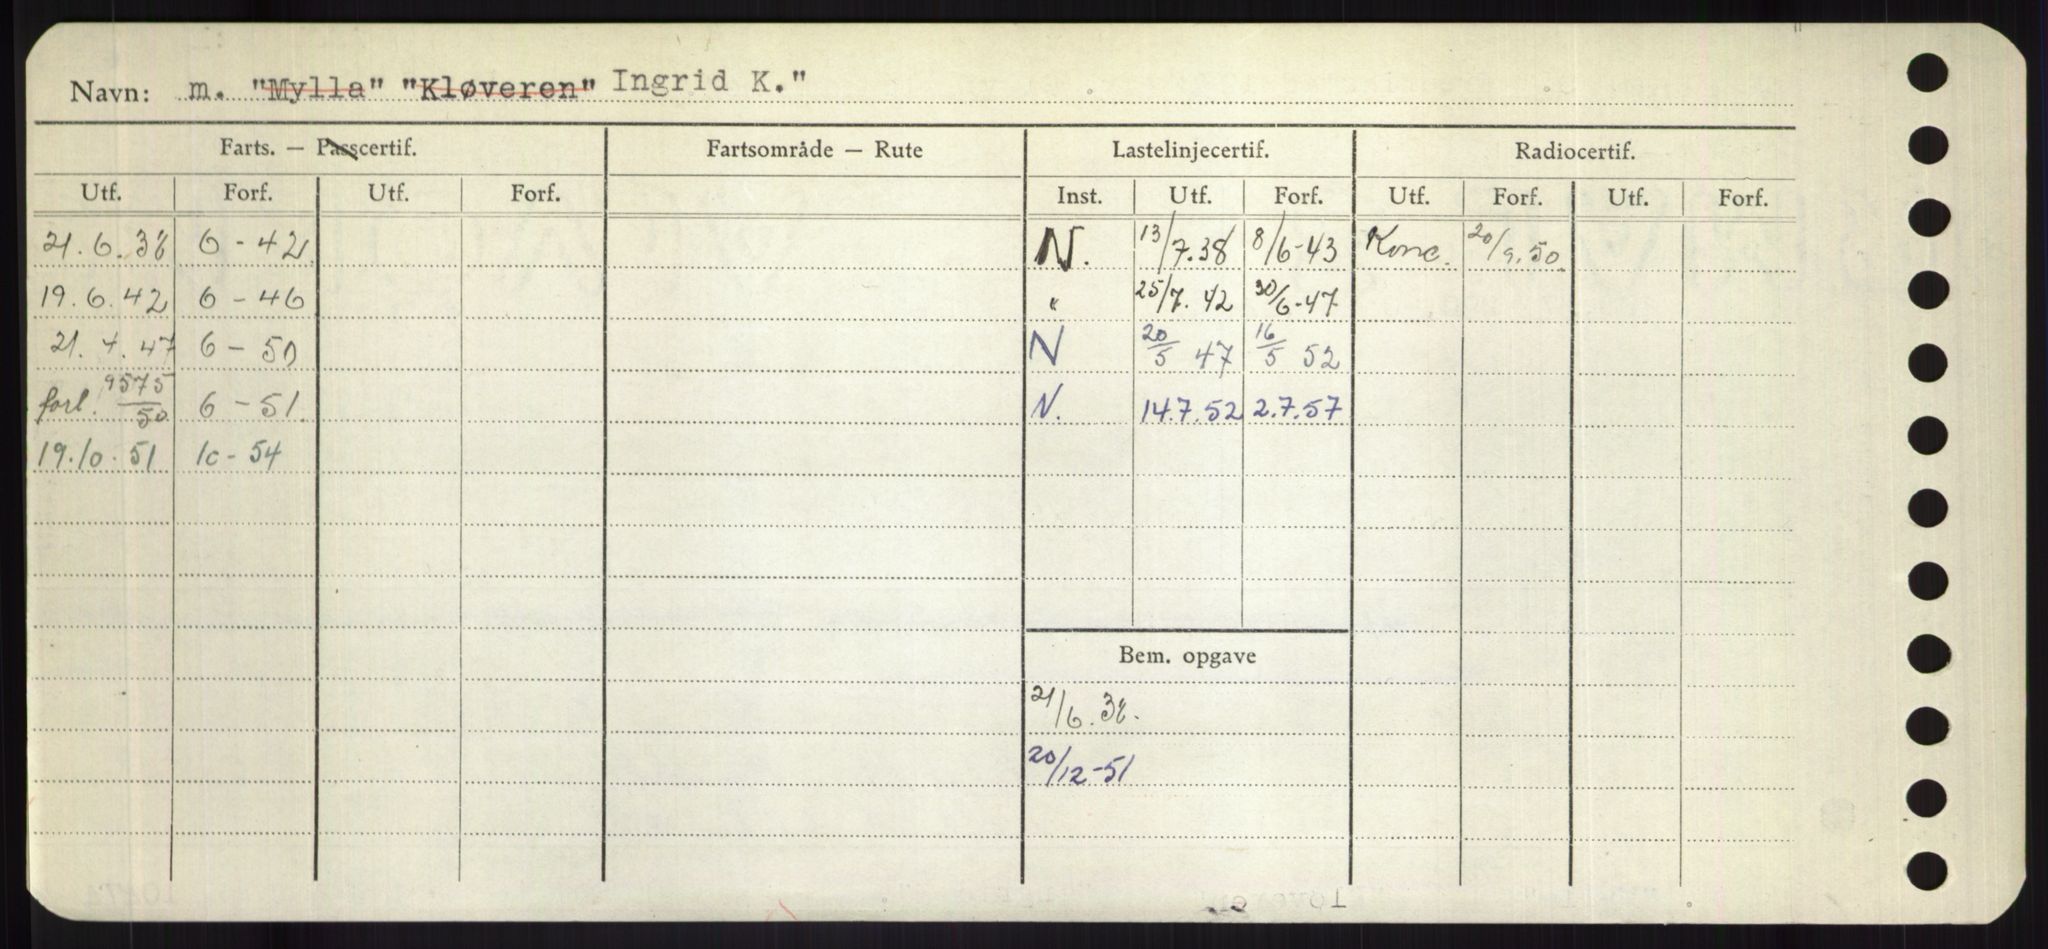 Navn: m. "Mylla" "Kløveren" Ingrid K."
Farts. — Passcertif. Fartsområde — Rute Lastelinjecertif. Radiocertif.
Utf. Forf. Utf. Forf. Inst. Utf. Forf. Utf. Forf. Utf. Forf.
21.6.38 6-42 N. 13/7.38 8/6-43 Konc. 20/9.50
19.6.42 6-46 " 25/7.42 30/6-47
21.4.47 6-50 N 20/5 47 16/5 52
forl. 9575/50 6-51. N. 14.7.52 2.7.57
19.10.51 10-54
Bem. opgave
21/6.38.
20/12-51